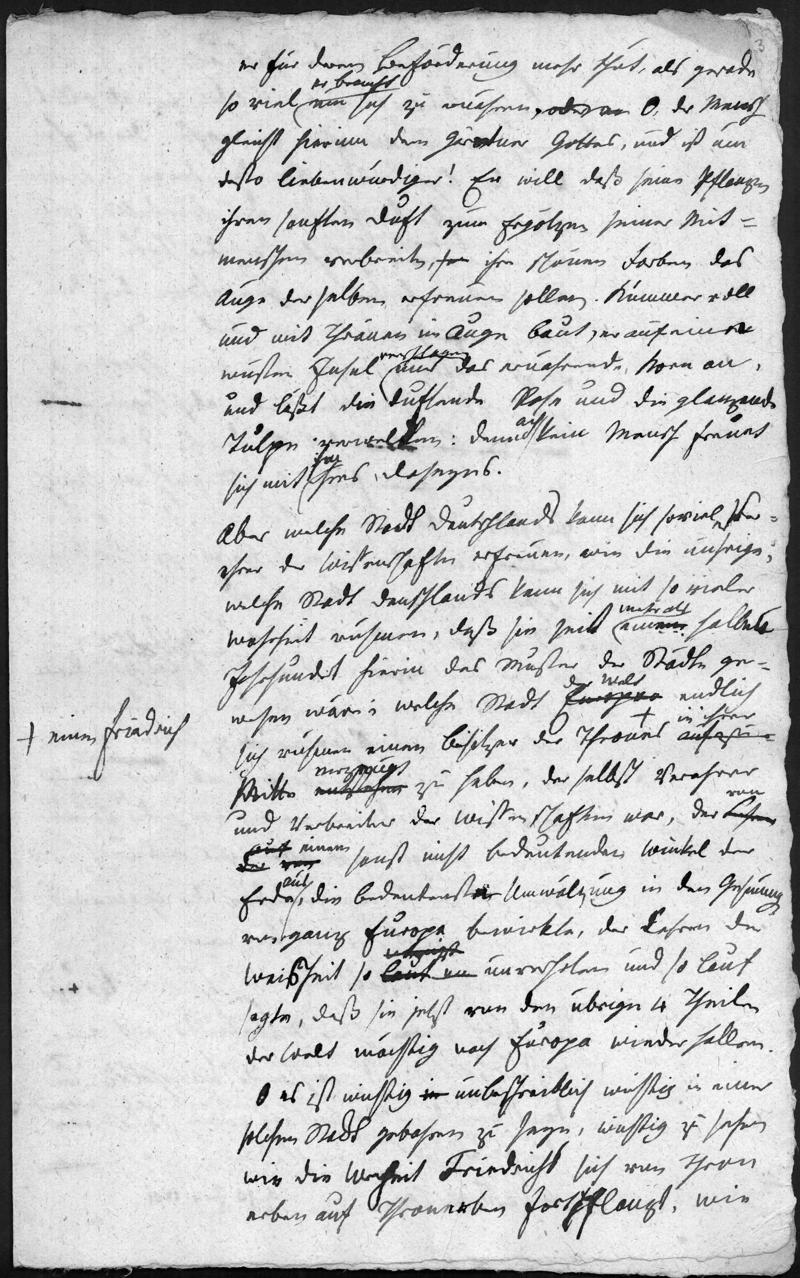 3
er für deren Beförderung mehr thut, als gerade
er braucht
so viel um sich zu nähren, oder an O, der Mensch
gleicht hierinn dem Gärtner Gottes, und ist um
desto liebenswürdiger! Er will daß seine Pflanzen
ihren sanften Duft zum Ergötzen seiner Mit=
menschen verbreiten, ihre schönen Farben das
Auge derselben erfreuen sollen. Kummervoll
und mit Thränen im Auge baut, er auf einer
verschlagen
wüsten Insel nur das ernährende Korn an,
und läßt die duftende Rose und die glänzende
ach
Tulpe verwelken: denn kein Mensch freuet
ihm
sich mit ihres Daseyns.
Aber welche Stadt Deutschlands kann sich so vieler Ver=
ehrer der Wissenschaften erfreuen, wie die unsrige;
welche Stadt Deutschlands kann sich mit so vieler
mehr als
Wahrheit rühmen, daß sie seit einem halben
Jahrhundert hierin das Muster der Städte ge=
der Welt
wesen wäre: welche Stadt Europas endlich
+ einen Friedrich
+ in ihrer
sich rühmen einen Besitzer des Thrones
erzeugt
Mitte zu haben, der selbst Verehrer
von
und Verbreiter der Wissenschaften war, der
auf einem
der von sonst nicht bedeutenden Winkel der
aus
Erde, die bedeutenste Umwälzung in den Gesinnung
von ganz Europa bewirkte, der Lehren der
Weisheit so laut unverholen und so laut
sagte, daß sie jetzt von den übrigen 4 Theilen
der Welt mächtig nach Europa wieder hallen.
O es ist wichtig in unbeschreiblich wichtig in einer
solchen Stadt gebohren zu seyn, wichtig zu sehen
wie die Weisheit Friedrichs sich von Thron
erben auf Thronerben fortpflanzt, wie